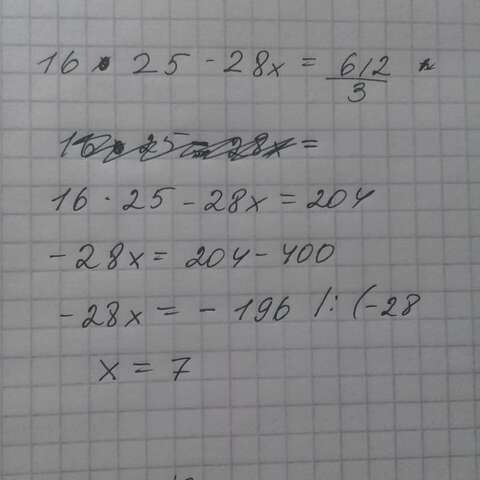 16 · 25 - 28x = 612/3
16 · 25 - 28x =
16 · 25 - 28x = 204
-28x = 204 - 400
-28x = - 196 /: (-28
x = 7